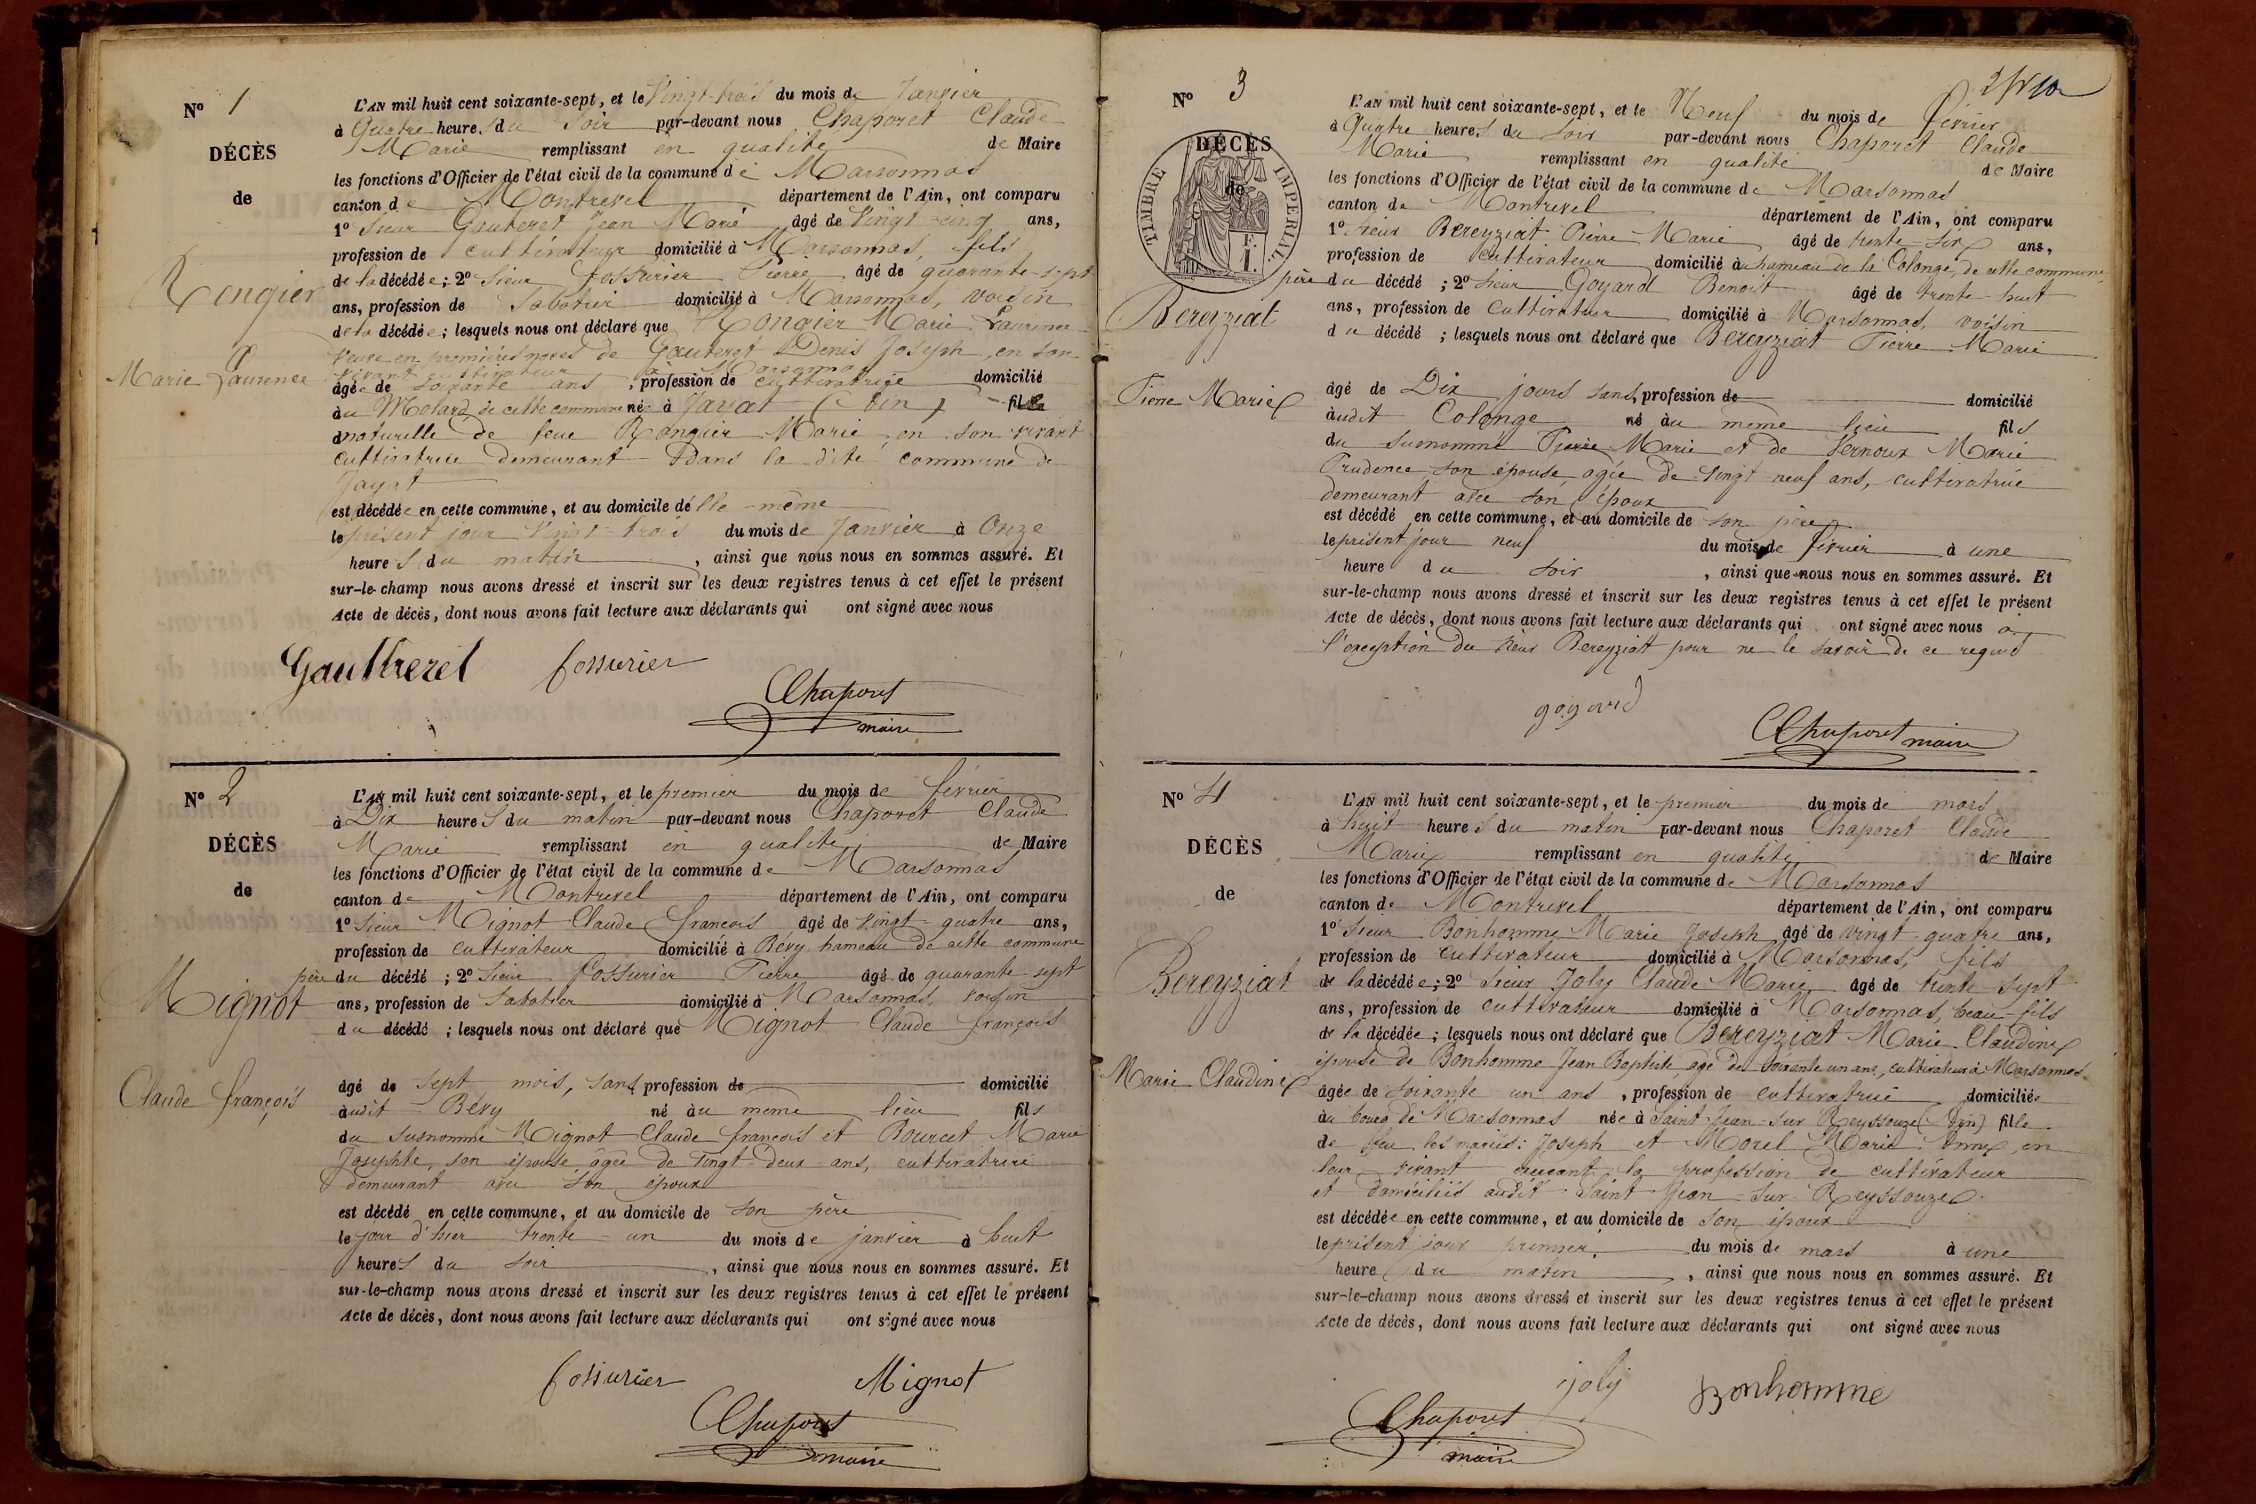 N° 1
DÉCÈS
de
Rongier
Marie Laurence
L'AN mil huit cent soixante-sept, et le Vingt-trois du mois de Janvier
à Quatre heures du soir par-devant nous Chaporet Claude
Marie remplissant en qualité de Maire
les fonctions d'Officier de l'état civil de la commune de Marsonnas
canton de Montrevel département de l'Ain, ont comparu
1° Sieur Gauteret Jean Marie âgé de Vingt-cinq ans,
profession de cultivateur domicilié à Marsonnas, fils
de la décédée; 2° Sieur Fossurier Pierre âgé de quarante-sept
ans, profession de Sabotier domicilié à Marsonnas, voisin
de la décédée; lesquels nous ont déclaré que Rongier Marie Laurence
Veuve en premières noces de Gauteret Denis Joseph, en son
vivant cultivateur à Marsonnas
âgée de soixante ans, profession de cultivatrice domicilié
au Molard de cette commune née à Jayat (Ain) fille
naturelle de feue Rongier Marie en son vivant
cultivatrice demeurant dans la dite commune de
Jayat
est décédée en cette commune, et au domicile d'elle-même
le présent jour vingt-trois du mois de Janvier à Onze
heures du matin, ainsi que nous nous en sommes assuré. Et
sur-le-champ nous avons dressé et inscrit sur les deux registres tenus à cet effet le présent
Acte de décès, dont nous avons fait lecture aux déclarants qui ont signé avec nous
Gautherel fossurier
Chaporet
maire
N° 2
DÉCÈS
de
Mignot
Claude françois
L'AN mil huit cent soixante-sept, et le premier du mois de février
à Dix heures du matin par-devant nous Chaporet Claude
Marie remplissant en qualité de Maire
les fonctions d'Officier de l'état civil de la commune de Marsonnas
canton de Montrevel département de l'Ain, ont comparu
1° Sieur Mignot Claude françois âgé de vingt-quatre ans,
profession de cultivateur domicilié à Bévy hameau de cette commune
père du décédé; 2° Sieur Fossurier Pierre âgé de quarante-sept
ans, profession de sabotier domicilié à Marsonnas, voisin
du décédé; lesquels nous ont déclaré que Mignot Claude françois
âgé de sept mois, sans profession de domicilié
audit Bévy né au même lieu fils
du susnommé Mignot Claude françois et Bourcet Marie
Josephte, son épouse âgée de Vingt-deux ans, cultivatrice
demeurant avec son époux
est décédé en cette commune, et au domicile de son père
le jour d'hier trente-un du mois de janvier à huit
heures du soir, ainsi que nous nous en sommes assuré. Et
sur-le-champ nous avons dressé et inscrit sur les deux registres tenus à cet effet le présent
Acte de décès, dont nous avons fait lecture aux déclarants qui ont signé avec nous
fossurier Mignot
Chaporet
maire
N° 3
DÉCÈS
de
TIMBRE IMPÉRIAL
Bereyziat
Pierre Marie
L'AN mil huit cent soixante-sept, et le Neuf du mois de février
à Quatre heures du soir par-devant nous Chaporet Claude
Marie remplissant en qualité de Maire
les fonctions d'Officier de l'état civil de la commune de Marsonnas
canton de Montrevel département de l'Ain, ont comparu
1° Sieur Bereyziat Pierre Marie âgé de trente-six ans,
profession de cultivateur domicilié au hameau de la Colonge, de cette commune
père du décédé; 2° Sieur Goyard Benoit âgé de trente-huit
ans, profession de Cultivateur domicilié à Marsonnas, voisin
du décédé; lesquels nous ont déclaré que Bereyziat Pierre Marie
âgé de Dix jours sans profession de domicilié
audit Colonge né au même lieu fils
du susnommé Pierre Marie et de Vernoux Marie
Prudence son épouse, agée de vingt-neuf ans, cultivatrice
demeurant avec son époux
est décédé en cette commune, et au domicile de son père
le présent jour neuf du mois de février à une
heure du soir, ainsi que nous nous en sommes assuré. Et
sur-le-champ nous avons dressé et inscrit sur les deux registres tenus à cet effet le présent
Acte de décès, dont nous avons fait lecture aux déclarants qui ont signé avec nous à
l'exception du sieur Bereyziat pour ne le savoir de ce requis
goyard
Chaporet maire
N° 4
DÉCÈS
de
Bereyziat
Marie Claudine
L'AN mil huit cent soixante-sept, et le premier du mois de mars
à huit heures du matin par-devant nous Chaporet Claude
Marie remplissant en qualité de Maire
les fonctions d'Officier de l'état civil de la commune de Marsonnas
canton de Montrevel département de l'Ain, ont comparu
1° Sieur Bonhomme Marie Joseph âgé de vingt-quatre ans,
profession de cultivateur domicilié à Marsonnas, fils
de la décédée; 2° Sieur Joly Claude Marie âgé de trente-sept
ans, profession de cultivateur domicilié à Marsonnas, beau-fils
de la décédée; lesquels nous ont déclaré que Bereyziat Marie Claudine
épouse de Bonhomme Jean Baptiste, agé de soixante un ans, cultivateur à Marsonnas
âgée de soixante un ans, profession de cultivatrice domiciliée
au bourg de Marsonnas née à Saint-Jean-sur-Reyssouze (Ain) fille
de feu les mariés: Joseph et Morel Marie Anne, en
leur vivant exerçant la profession de cultivateur
et domiciliés audit Saint-Jean-sur-Reyssouze
est décédée en cette commune, et au domicile de son époux
le présent jour premier du mois de mars à une
heure du matin, ainsi que nous nous en sommes assuré. Et
sur-le-champ nous avons dressé et inscrit sur les deux registres tenus à cet effet le présent
Acte de décès, dont nous avons fait lecture aux déclarants qui ont signé avec nous
joly Bonhomme
Chaporet
maire